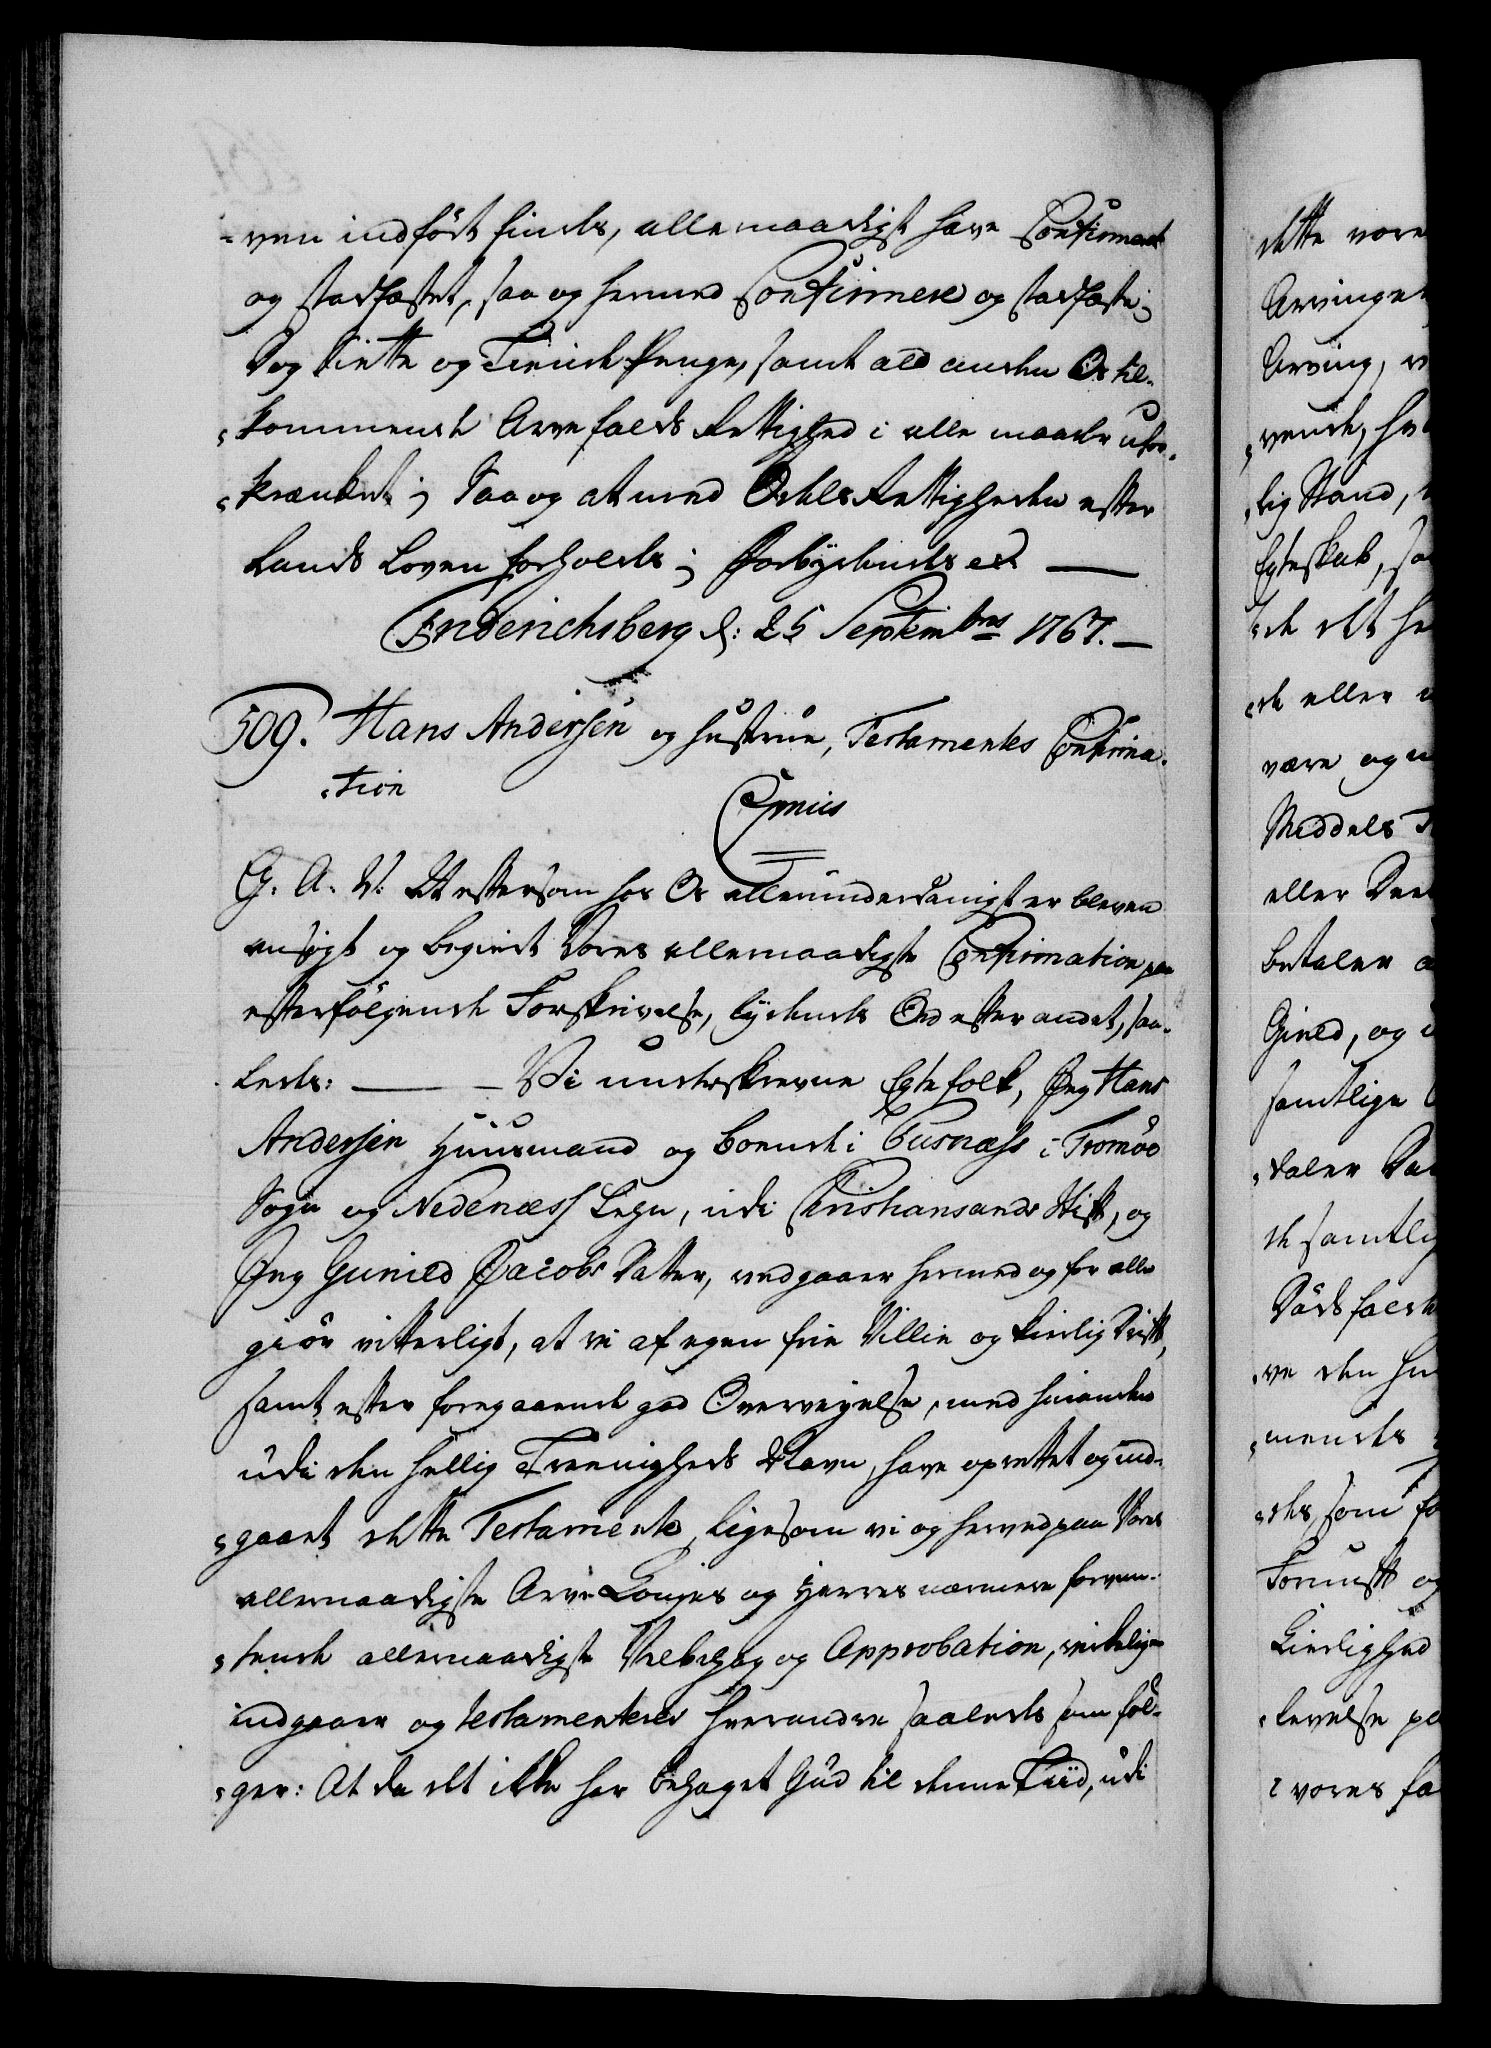 -ven indført findes, allernaadigst have Confirmeret
og stadfæstet, saa og hermed Confirmere og stadfæste;
Dog Siette og Tiende Penge, samt ald anden Os til-
-kommende Arvefalds Rettighed i alle maader ufor-
-krænket; Saa og at med Odels Rettigheden efter
Lands Loven forholdes; Forbydendes es. —
Friderichsberg d: 25 Septembris 1767. —
509. Hans Andersen og Hustrue, Testamentes Confirma-
-tion
G. A. V: At eftersom hos Os allerunderdanigst er bleven
ansøgt og begiert Vores allernaadigste Confirmation paa
efterfølgende Forskrivelse, lydende Ord efter andet, saa-
ledes: — Vi underskrevne Egtefolk, Jeg Hans
Andersen Huusmand og boende i Pusnæss i Tromøe
Sogn og Nedenæss Lehn, udi Christiansands Stift, og
Jeg Gunild Jacobs Datter, vedgaaer hermed og for alle
giør vitterligt, at vi af egen frie Villie og kierlig Drift,
samt efter foregaaende god Overveyelse, med hinanden
udi den hellig Treenigheds Navn, have oprettet og ind-
-gaaet dette Testamente, ligesom vi og herved paa Vores
allernaadigste Arve Konges og Herres nærmere forven-
-tende allernaadigste Velbehag og Approbation, virkelig
indgaaer og testamenterer hverandre saaledes som føl-
-ger: At da det ikke har behaget Gud til denne Tiid, udi
dette vore
Arvinger
Arving, v
-vende, hv
-lig Stand,
Egteskab, sa
de det he
-de eller
være og
Meddels
eller
betaler a
Gield, og
samtlige
-daler Da
de samtlig
Døds falde
-ve den
-mendes
-des, som fo
Fornuft og
Kierlighed
-levelse pa
vores fa